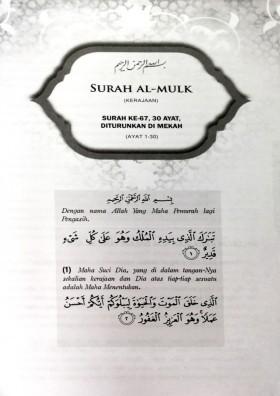 بسم الله الرحمن الرحيم
SURAH AL-MULK
(KERAJAAN)
SURAH KE-67, 30 AYAT,
DITURUNKAN DI MEKAH
(AYAT 1-30)
بِسْمِ اللَّهِ الرَّحْمَٰنِ الرَّحِيمِ
Dengan nama Allah Yang Maha Pemurah lagi
Pengasih.
تَبَٰرَكَ ٱلَّذِى بِيَدِهِ ٱلْمُلْكُ وَهُوَ عَلَىٰ كُلِّ شَىْءٍ
قَدِيرٌ ١
(1) Maha Suci Dia, yang di dalam tangan-Nya
sekalian kerajaan dan Dia atas tiap-tiap sesuatu
adalah Maha Menentukan.
ٱلَّذِى خَلَقَ ٱلْمَوْتَ وَٱلْحَيَوٰةَ لِيَبْلُوَكُمْ أَيُّكُمْ أَحْسَنُ
عَمَلًا وَهُوَ ٱلْعَزِيزُ ٱلْغَفُورُ ٢